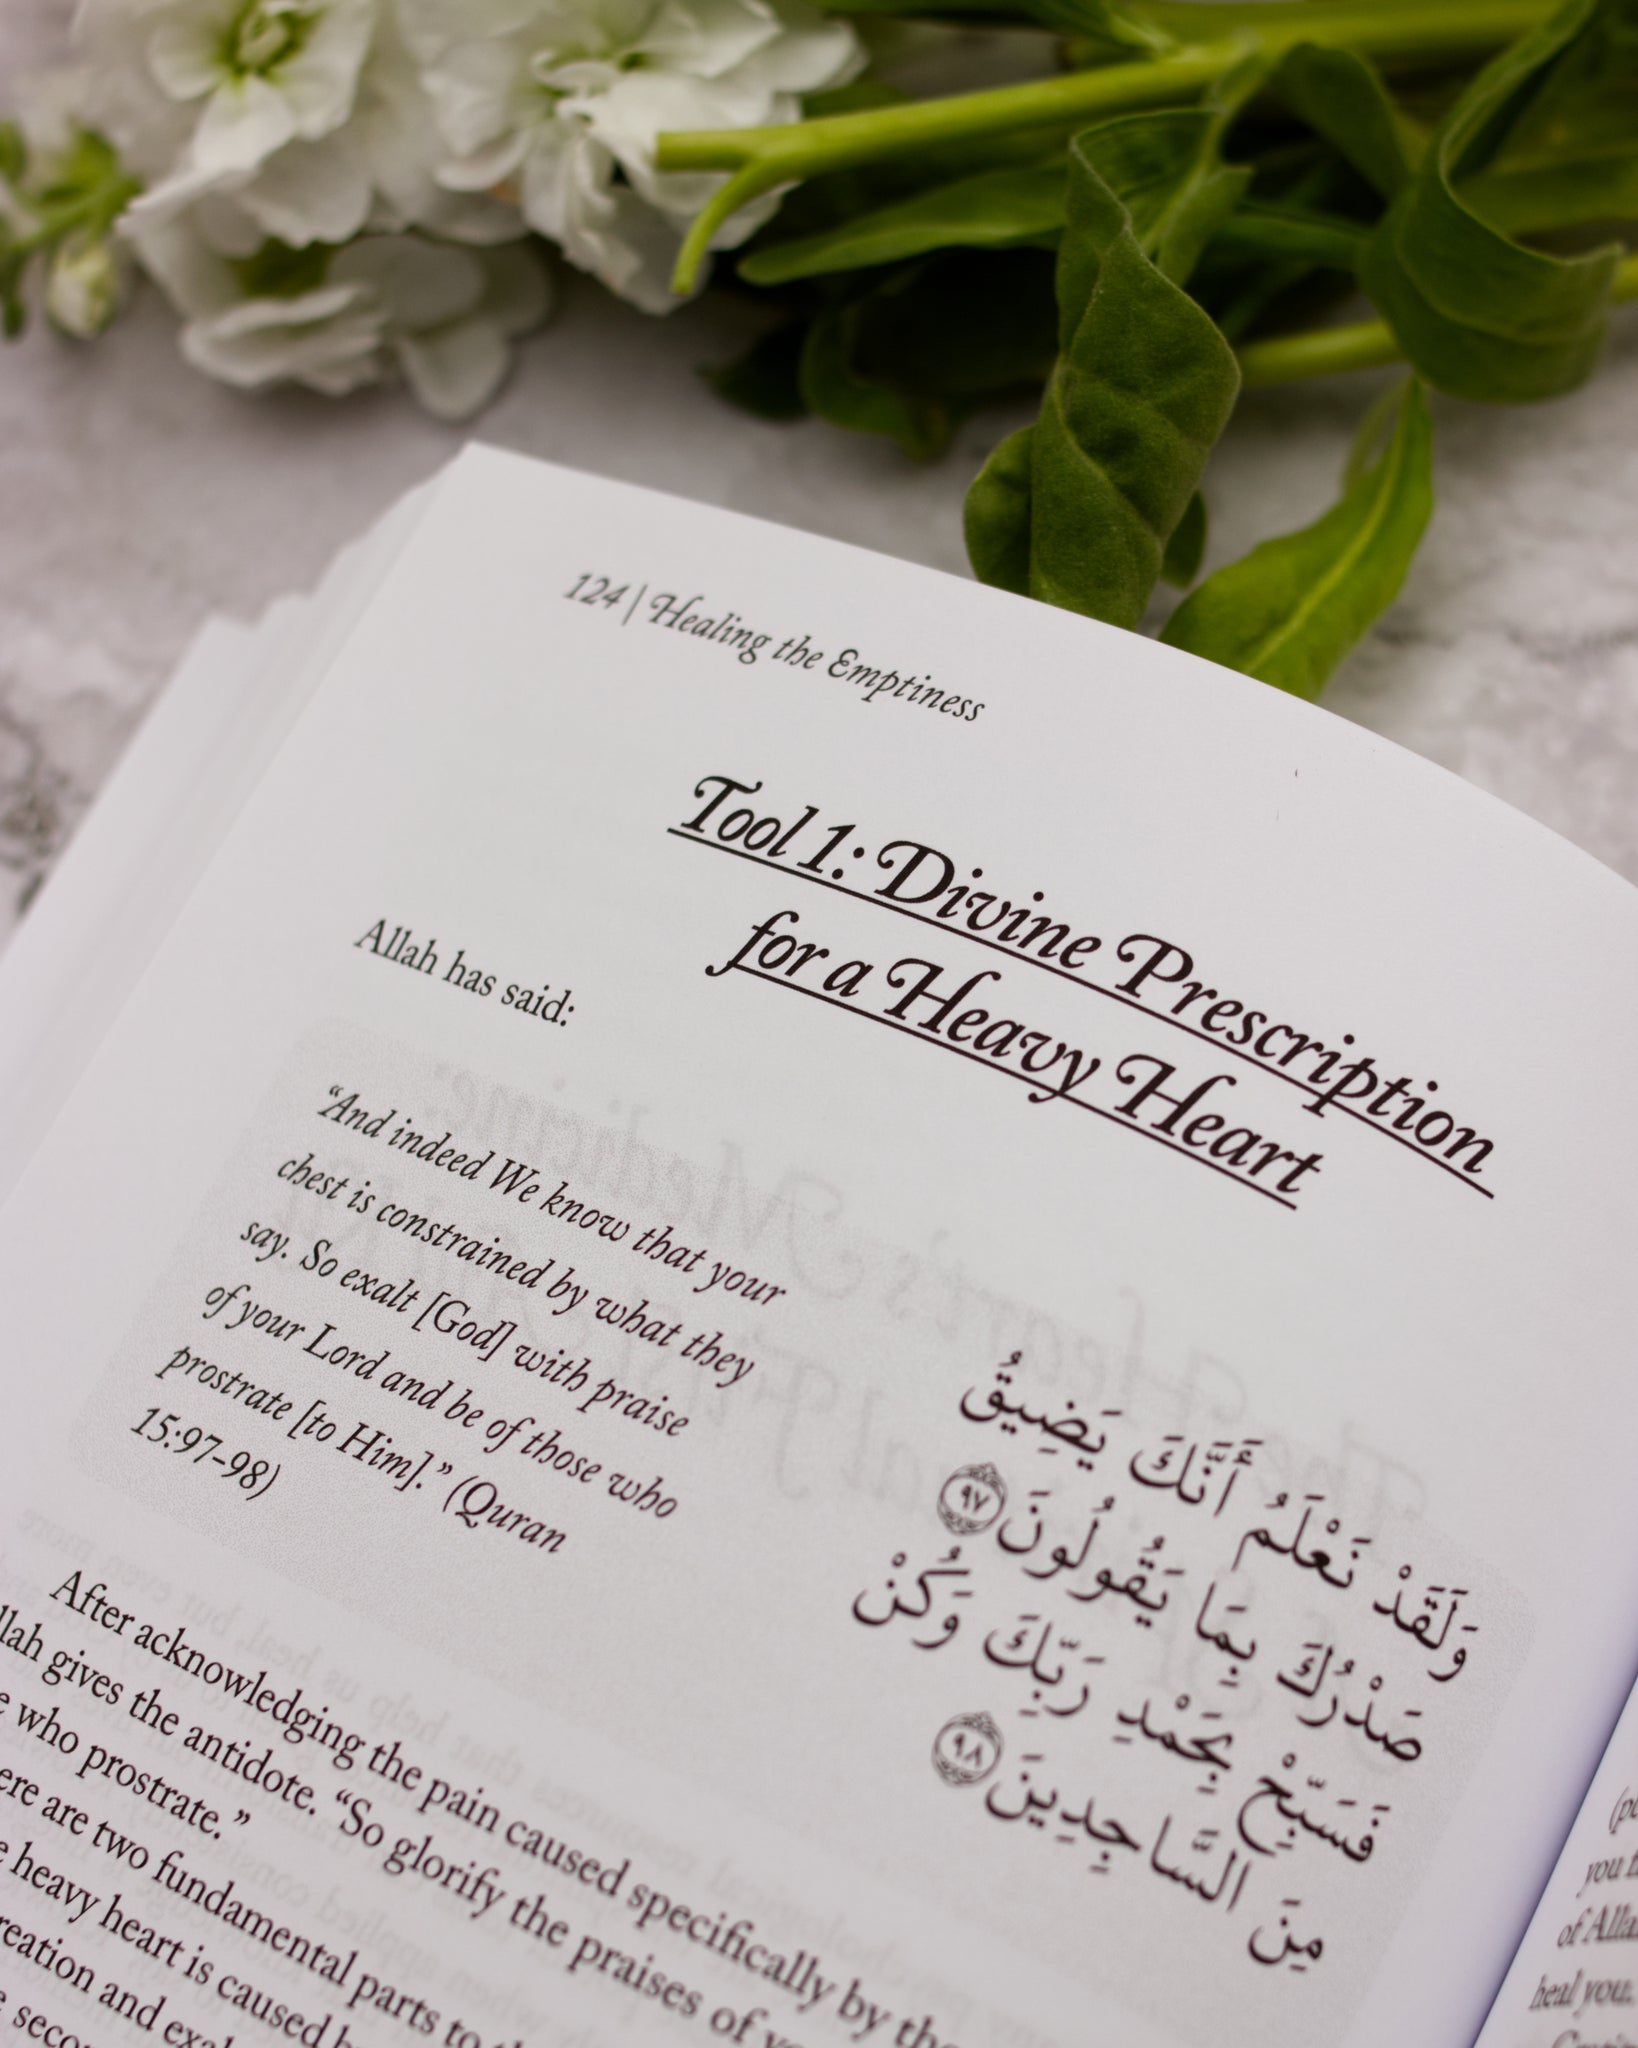 124 | Healing the Emptiness
Tool 1: Divine Prescription
for a Heavy Heart
Allah has said:
“And indeed We know that your
chest is constrained by what they
say. So exalt [God] with praise
of your Lord and be of those who
prostrate [to Him].” (Quran
15:97-98)
وَلَقَدْ نَعْلَمُ أَنَّكَ يَضِيقُ
صَدْرُكَ بِمَا يَقُولُونَ ٩٧
فَسَبِّحْ بِحَمْدِ رَبِّكَ وَكُنْ
مِنَ السَّاجِدِينَ ٩٨
After acknowledging the pain caused specifically by
gives the antidote. “So glorify the praises of
who prostrate.”
are two fundamental parts to
heavy heart is caused
and
you
of
heal you.